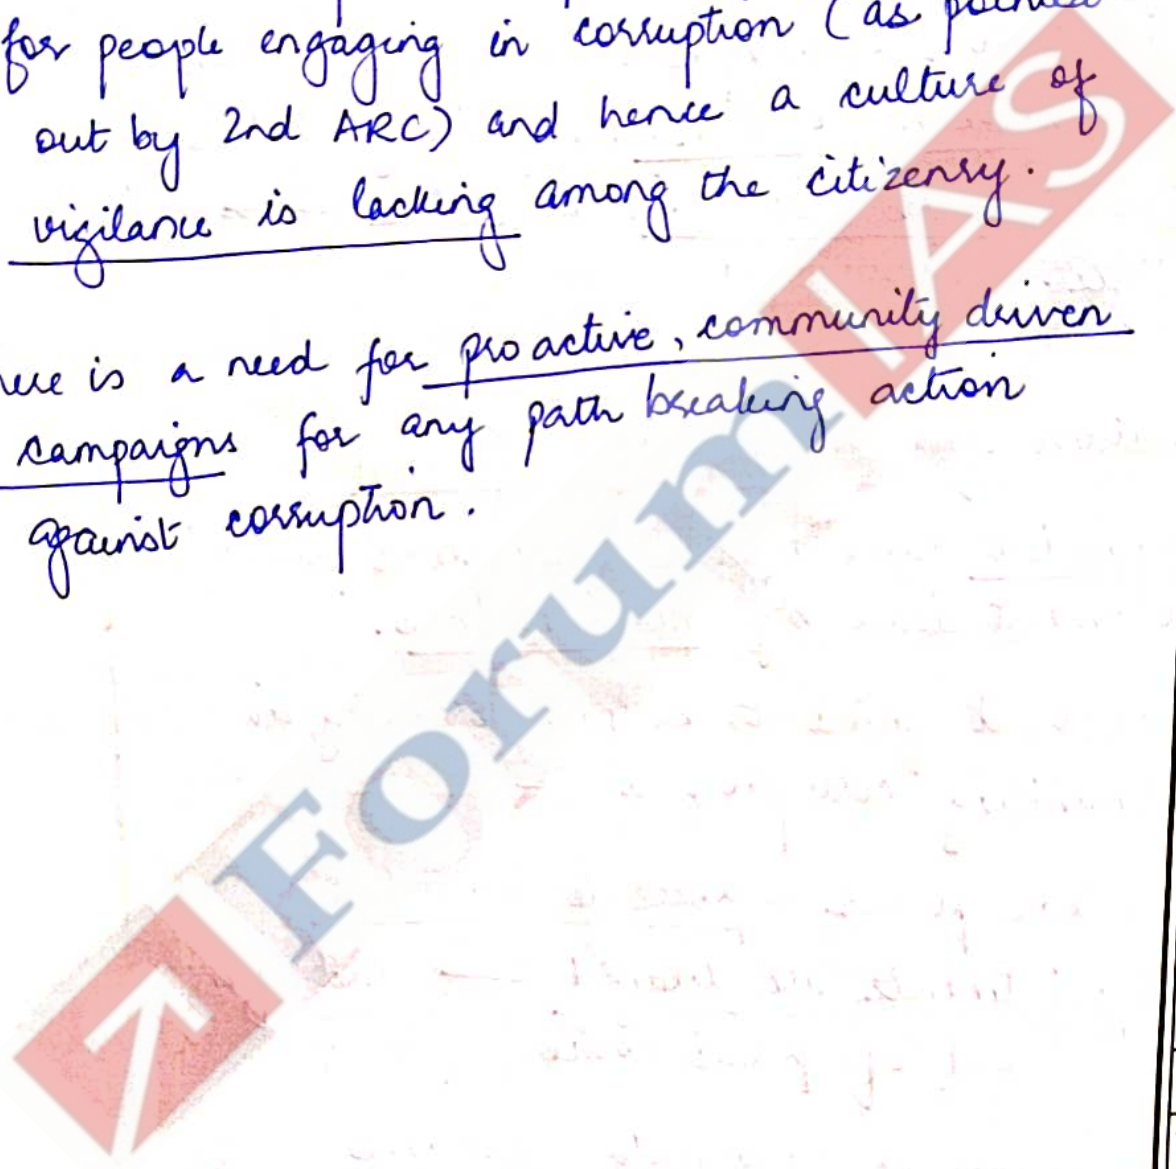 for people engaging in corruption (as pointed
out by 2nd ARC) and hence a culture of
vigilance is lacking among the citizenry.
is a need for proactive, community driven
campaigns for any path breaking action
against corruption.
ForumIAS